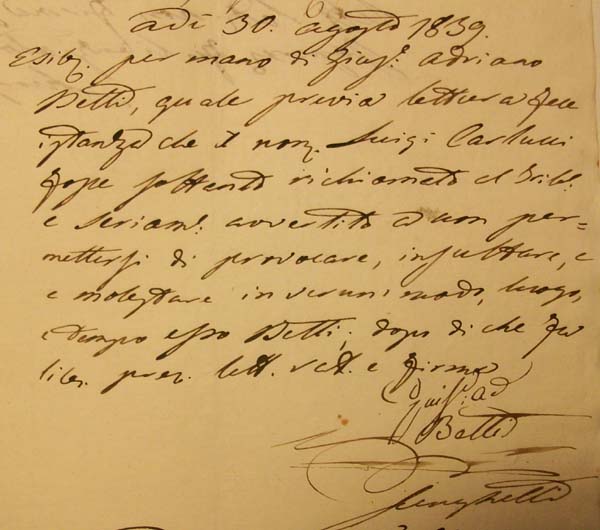 adì 30. agosto 1839.
Esibᵗ. per mano di Giusᵉ. Adriano
Betti, quale previa lettura fece
istanza che il nom. Luigi Carlucci
fosse sottendo richiamato al Tribˡ.
e seriamᵉ. avvertito a non per=
mettersi di provocare, insultare, e
e molestare in verun modo, luogo,
e tempo esso Betti; dopo di che fu
lib. prev. lett. ed. e firma
Giusᵉ. Ad
Betti